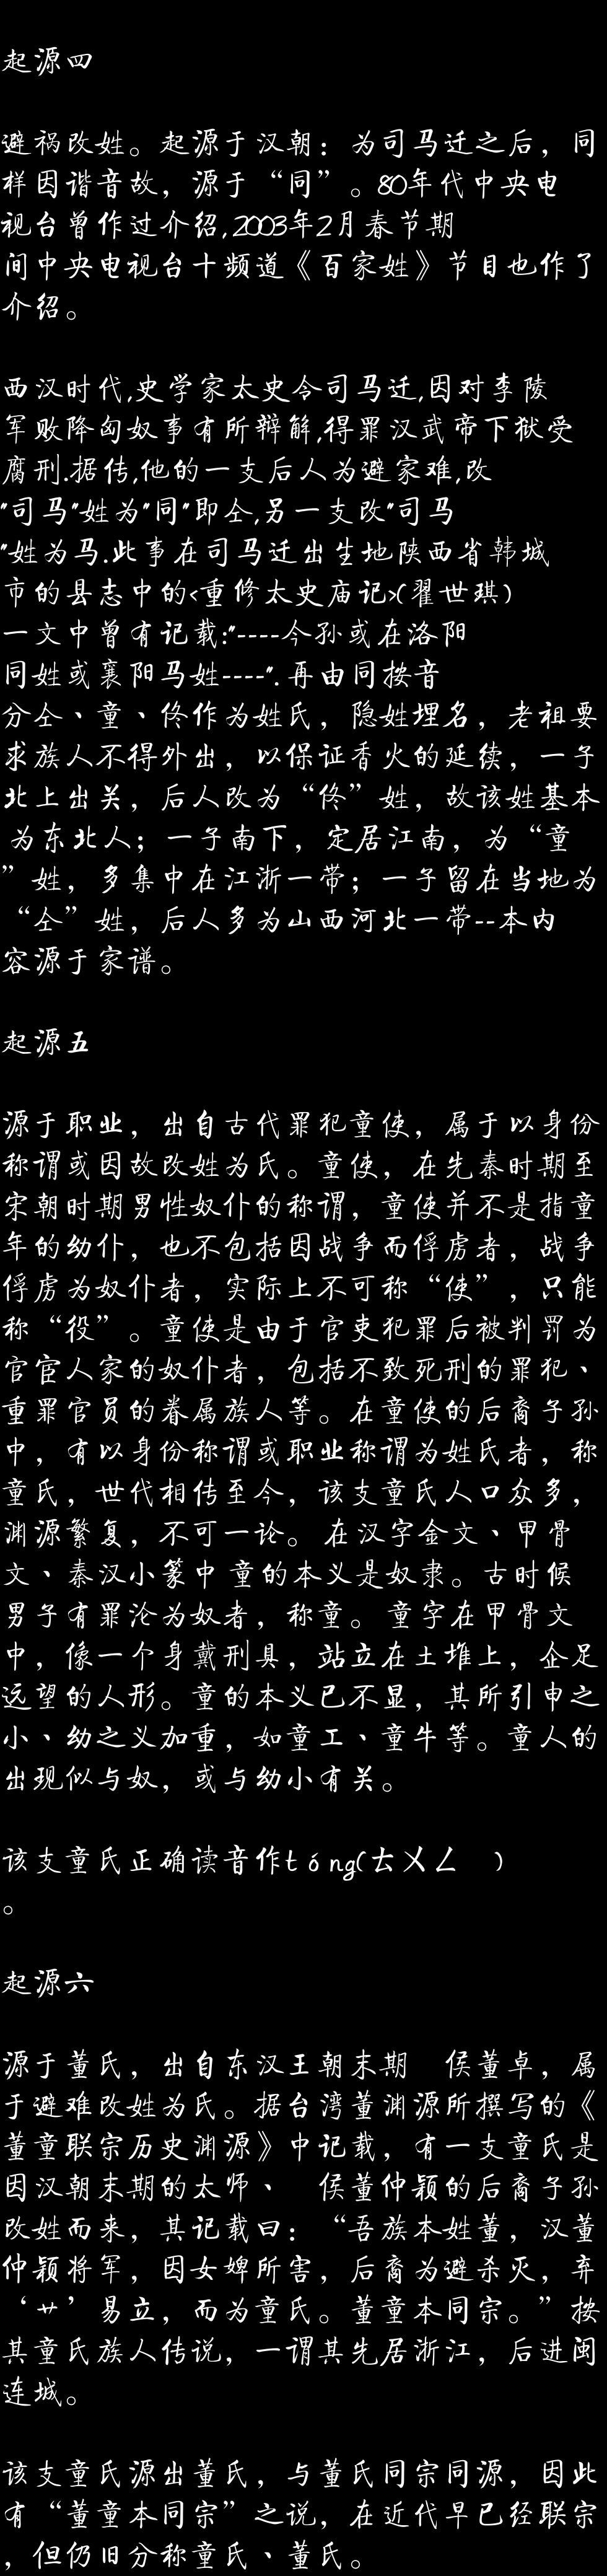 起源四
避祸改姓。起源于汉朝：为司马迁之后，同
样因谐音故，源于“同”。80年代中央电
视台曾作过介绍,2003年2月春节期
间中央电视台十频道《百家姓》节目也作了
介绍。
西汉时代,史学家太史令司马迁,因对李陵
军败降匈奴事有所辩解,得罪汉武帝下狱受
腐刑.据传,他的一支后人为避家难,改
"司马"姓为"同"即仝,另一支改"司马
"姓为马.此事在司马迁出生地陕西省韩城
市的县志中的<重修太史庙记>(翟世琪)
一文中曾有记载:"----今孙或在洛阳
同姓或襄阳马姓----". 再由同按音
分仝、童、佟作为姓氏，隐姓埋名，老祖要
求族人不得外出，以保证香火的延续，一子
北上出关，后人改为“佟”姓，故该姓基本
为东北人；一子南下，定居江南，为“童
”姓，多集中在江浙一带；一子留在当地为
“仝”姓，后人多为山西河北一带--本内
容源于家谱。
起源五
源于职业，出自古代罪犯童使，属于以身份
称谓或因故改姓为氏。童使，在先秦时期至
宋朝时期男性奴仆的称谓，童使并不是指童
年的幼仆，也不包括因战争而俘虏者，战争
俘虏为奴仆者，实际上不可称“使”，只能
称“役”。童使是由于官吏犯罪后被判罚为
官宦人家的奴仆者，包括不致死刑的罪犯、
重罪官员的眷属族人等。在童使的后裔子孙
中，有以身份称谓或职业称谓为姓氏者，称
童氏，世代相传至今，该支童氏人口众多，
渊源繁复，不可一论。 在汉字金文、甲骨
文、秦汉小篆中童的本义是奴隶。古时候
男子有罪沦为奴者，称童。 童字在甲骨文
中，像一个身戴刑具，站立在土堆上，企足
远望的人形。童的本义已不显，其所引申之
小、幼之义加重，如童工、童牛等。童人的
出现似与奴，或与幼小有关。
该支童氏正确读音作tóng(ㄊㄨㄥ )
。
起源六
源于董氏，出自东汉王朝末期 侯董卓，属
于避难改姓为氏。据台湾董渊源所撰写的《
董童联宗历史渊源》中记载，有一支童氏是
因汉朝末期的太师、 侯董仲颖的后裔子孙
改姓而来，其记载曰：“吾族本姓董，汉董
仲颖将军，因女婢所害，后裔为避杀灭，弃
‘艹’易立，而为童氏。董童本同宗。”按
其童氏族人传说，一谓其先居浙江，后进闽
连城。
该支童氏源出董氏，与董氏同宗同源，因此
有“董童本同宗”之说，在近代早已经联宗
，但仍旧分称童氏、董氏。